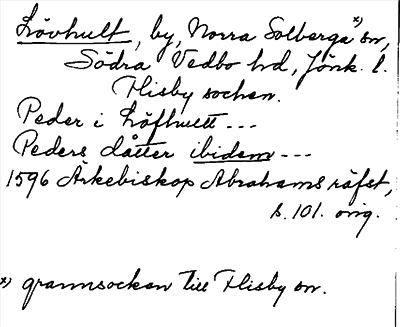 Lövhult, by, Norra Solberga x) sn,
Södra Vedbo hd, Jönk. l.
Flisby socken.
Peder i Löfhultt ---
Peders dåtter ibidem ---
1596 Ärkebiskop Abrahams räfst,
s. 101. orig.
x) grannsocken till Flisby sn.